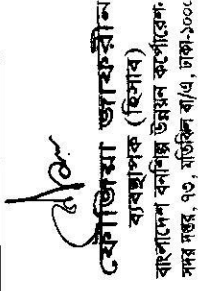 ফৌজিয়া জাফরীন
ব্যবস্থাপক (হিসাব)
বাংলাদেশ বনশিল্প উন্নয়ন কর্পোরেশন
সদর দপ্তর, ৭৩, মতিঝিল বা/এ, ঢাকা-১০০০